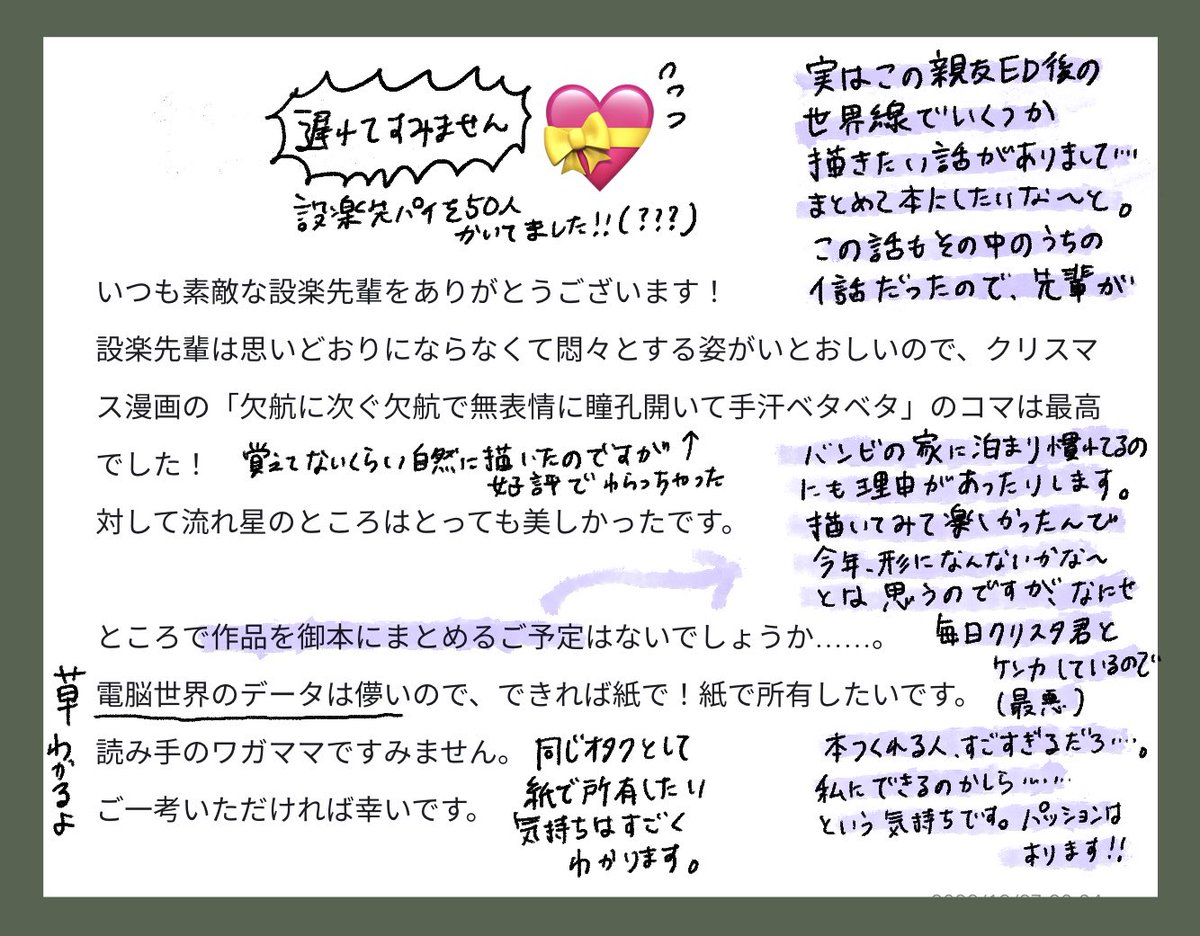 遅れてすみません
設楽先パイを50人
かいてました!!(???)
実はこの親友ED後の
世界線でいくつか
描きたい話がありまして…
まとめて本にしたいな〜と。
この話もその中のうちの
1話だったので、先輩が
バンビの家に泊まり慣れてるの
にも理由があったりします。
描いてみて楽しかったんで
今年、形になんないかな〜
とは思うのですが、なにせ
毎日クリスタ君と
ケンカしているので
(最悪)
本つくれる人、すごすぎるだろ…。
私にできるのかしら……
という気持ちです。パッションは
あります!!
いつも素敵な設楽先輩をありがとうございます！
設楽先輩は思いどおりにならなくて悶々とする姿がいとおしいので、クリスマ
ス漫画の「欠航に次ぐ欠航で無表情に瞳孔開いて手汗ベタベタ」のコマは最高
でした！
覚えてないくらい自然に描いたのですが↑
好評でわらっちゃった
対して流れ星のところはとっても美しかったです。
ところで作品を御本にまとめるご予定はないでしょうか……。
電脳世界のデータは儚いので、できれば紙で！紙で所有したいです。
草わかるよ
読み手のワガママですみません。
ご一考いただければ幸いです。
同じオタクとして
紙で所有したい
気持ちはすごく
わかります。